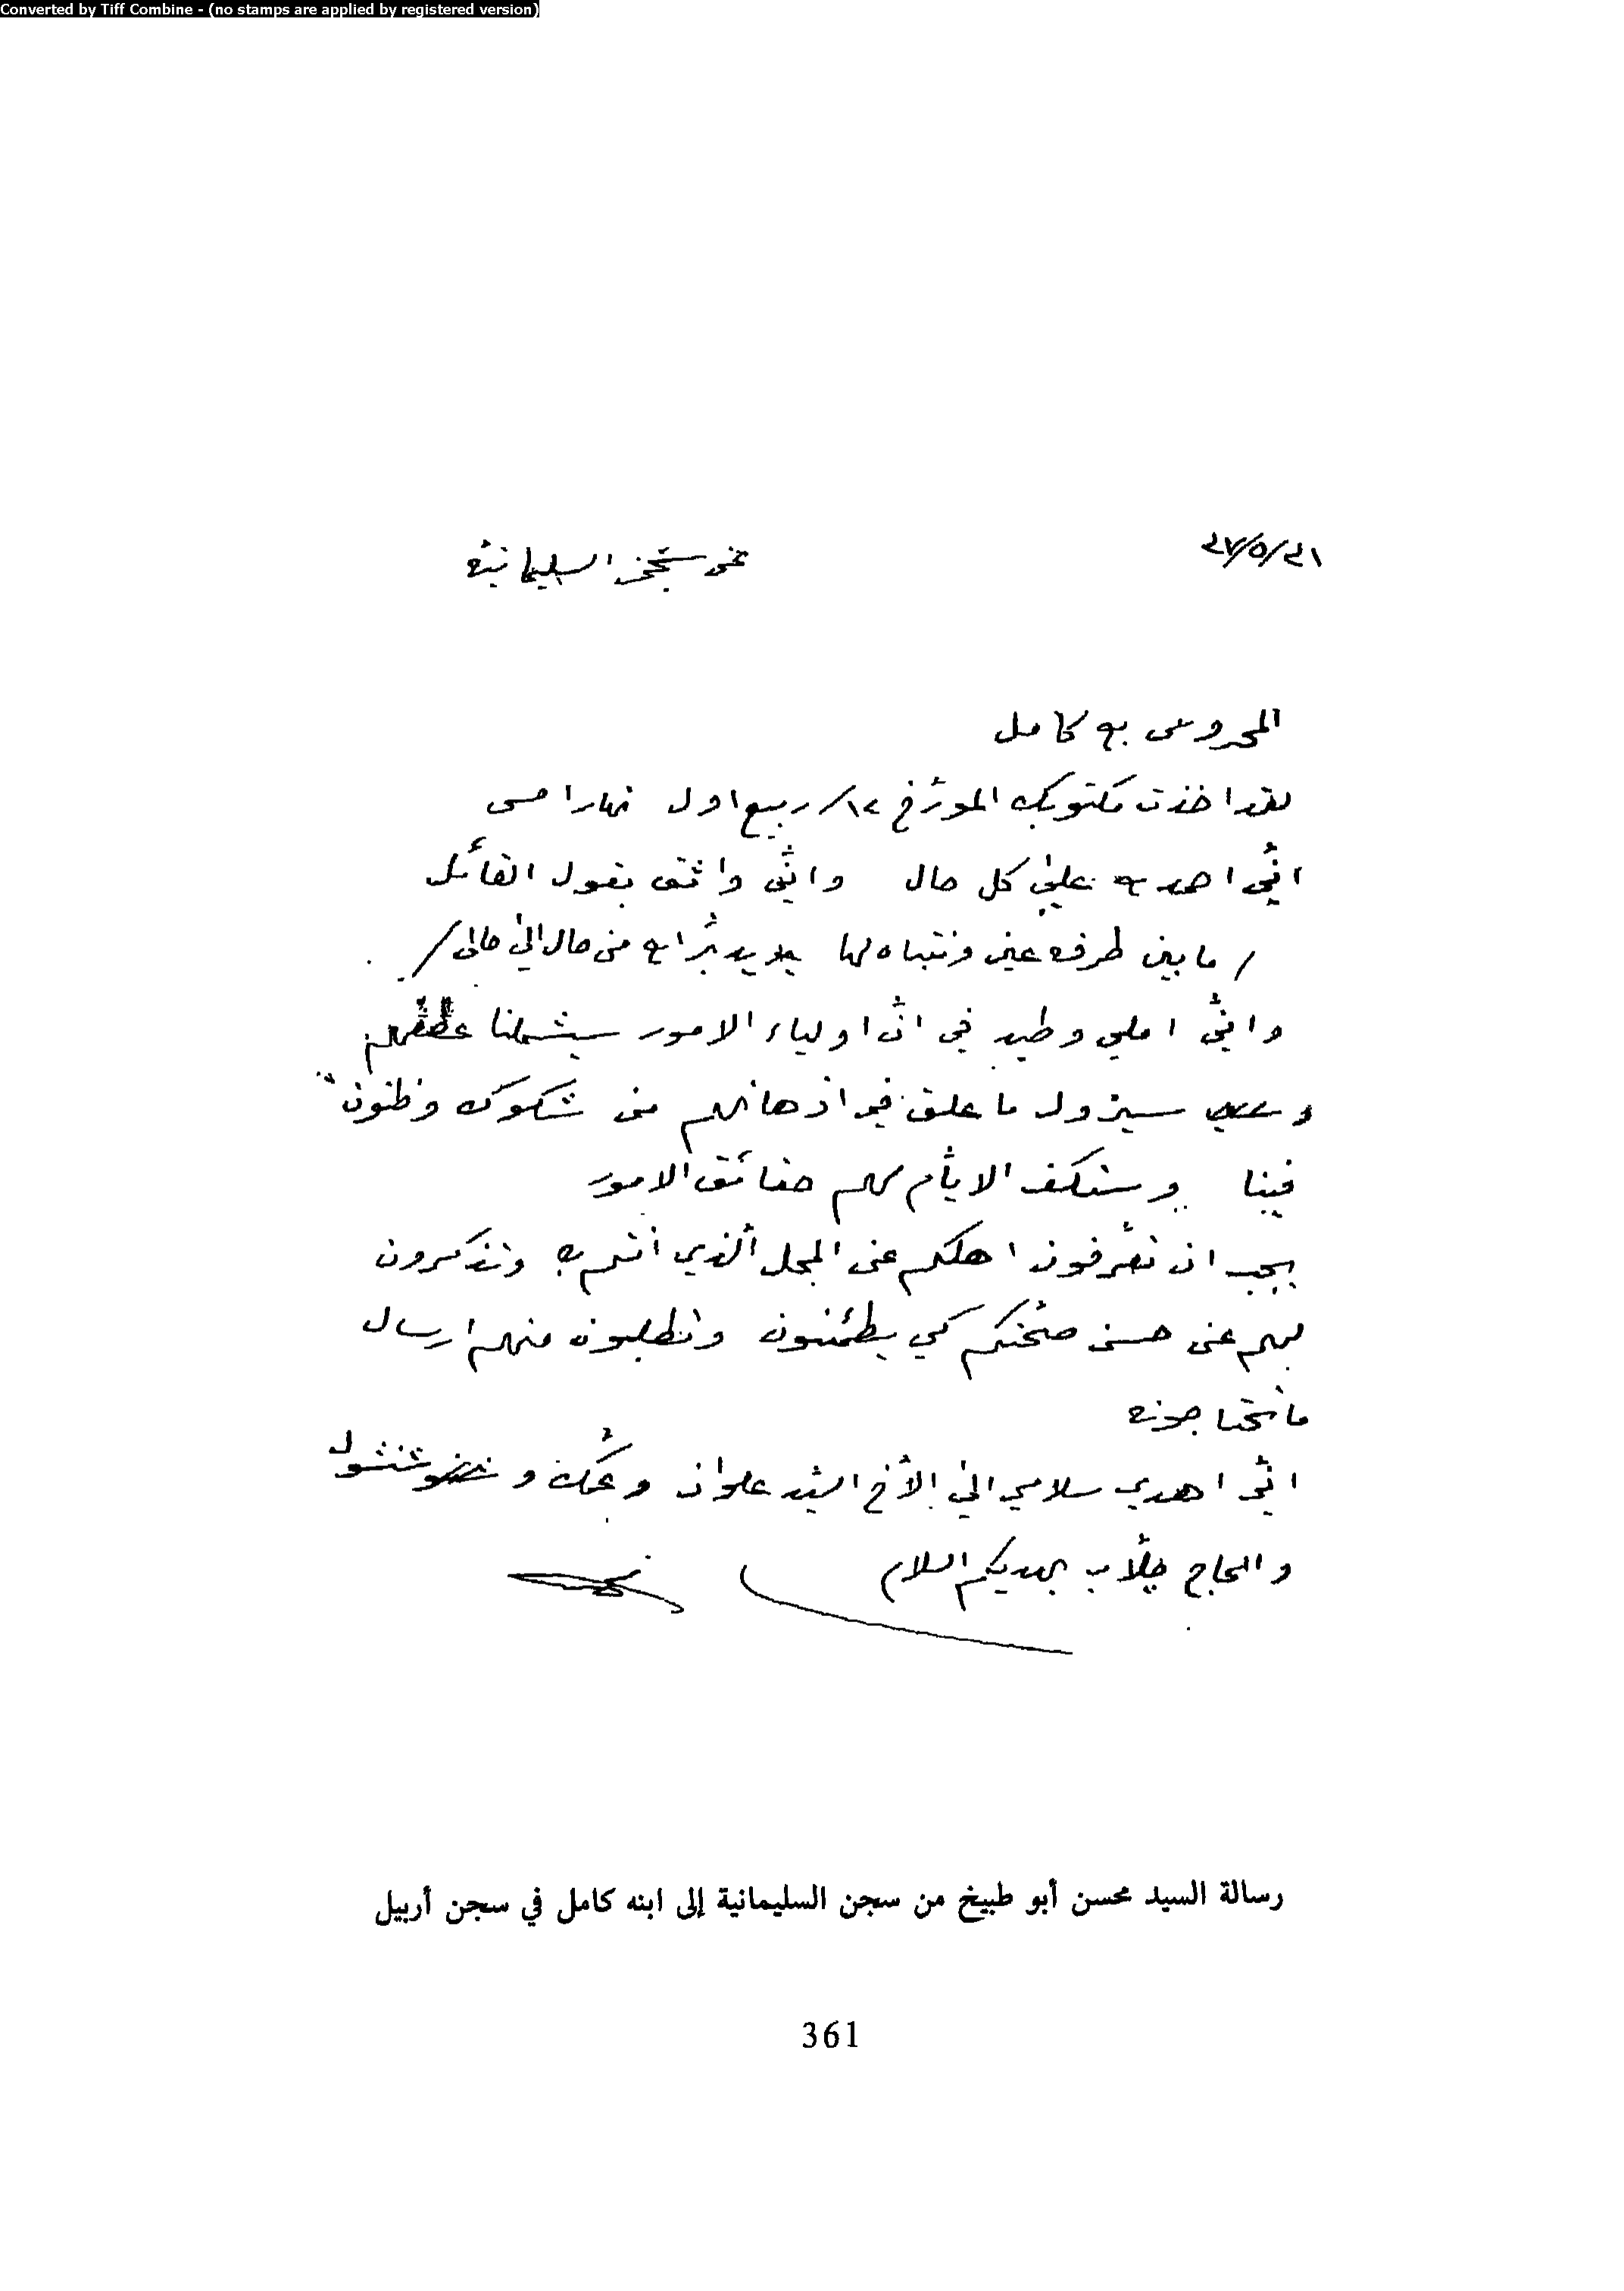 Converted by Tiff Combine - (no stamps are applied by registered version)
من سجن السليمانية
المحروس به كامل
لقد اخذت مكتوبك المورّخ ١٢/ ربيع اول نهار امس
انّي احمده على كل حال وانّي واثق بقول القائل
/ ما بين طرفه عين وانتباه لها يدبر الله من حال الى حال /
وانّي املي وطيد في انّ اولياء الامور سيشملنا عطفهم
سيزول ما علق في اذهانهم من شكوك وظنون
فينا وستكشف الايّام لهم حقائق الامور
يجب ان تعرّفون اهلكم عن المحل الّذي انتم به وتذكرون
لهم عن حسن صحّتكم كي يطمئنون وتطلبون منهم ارسال
ما تحتاجونه
انّي اهدي سلامي الى الأخ السيّد علوان وعمّك و
والحاج چلّاب يهديكم السلام
رسالة السيد محسن أبو طبيخ من سجن السليمانية إلى ابنه كامل في سجن أربيل
361